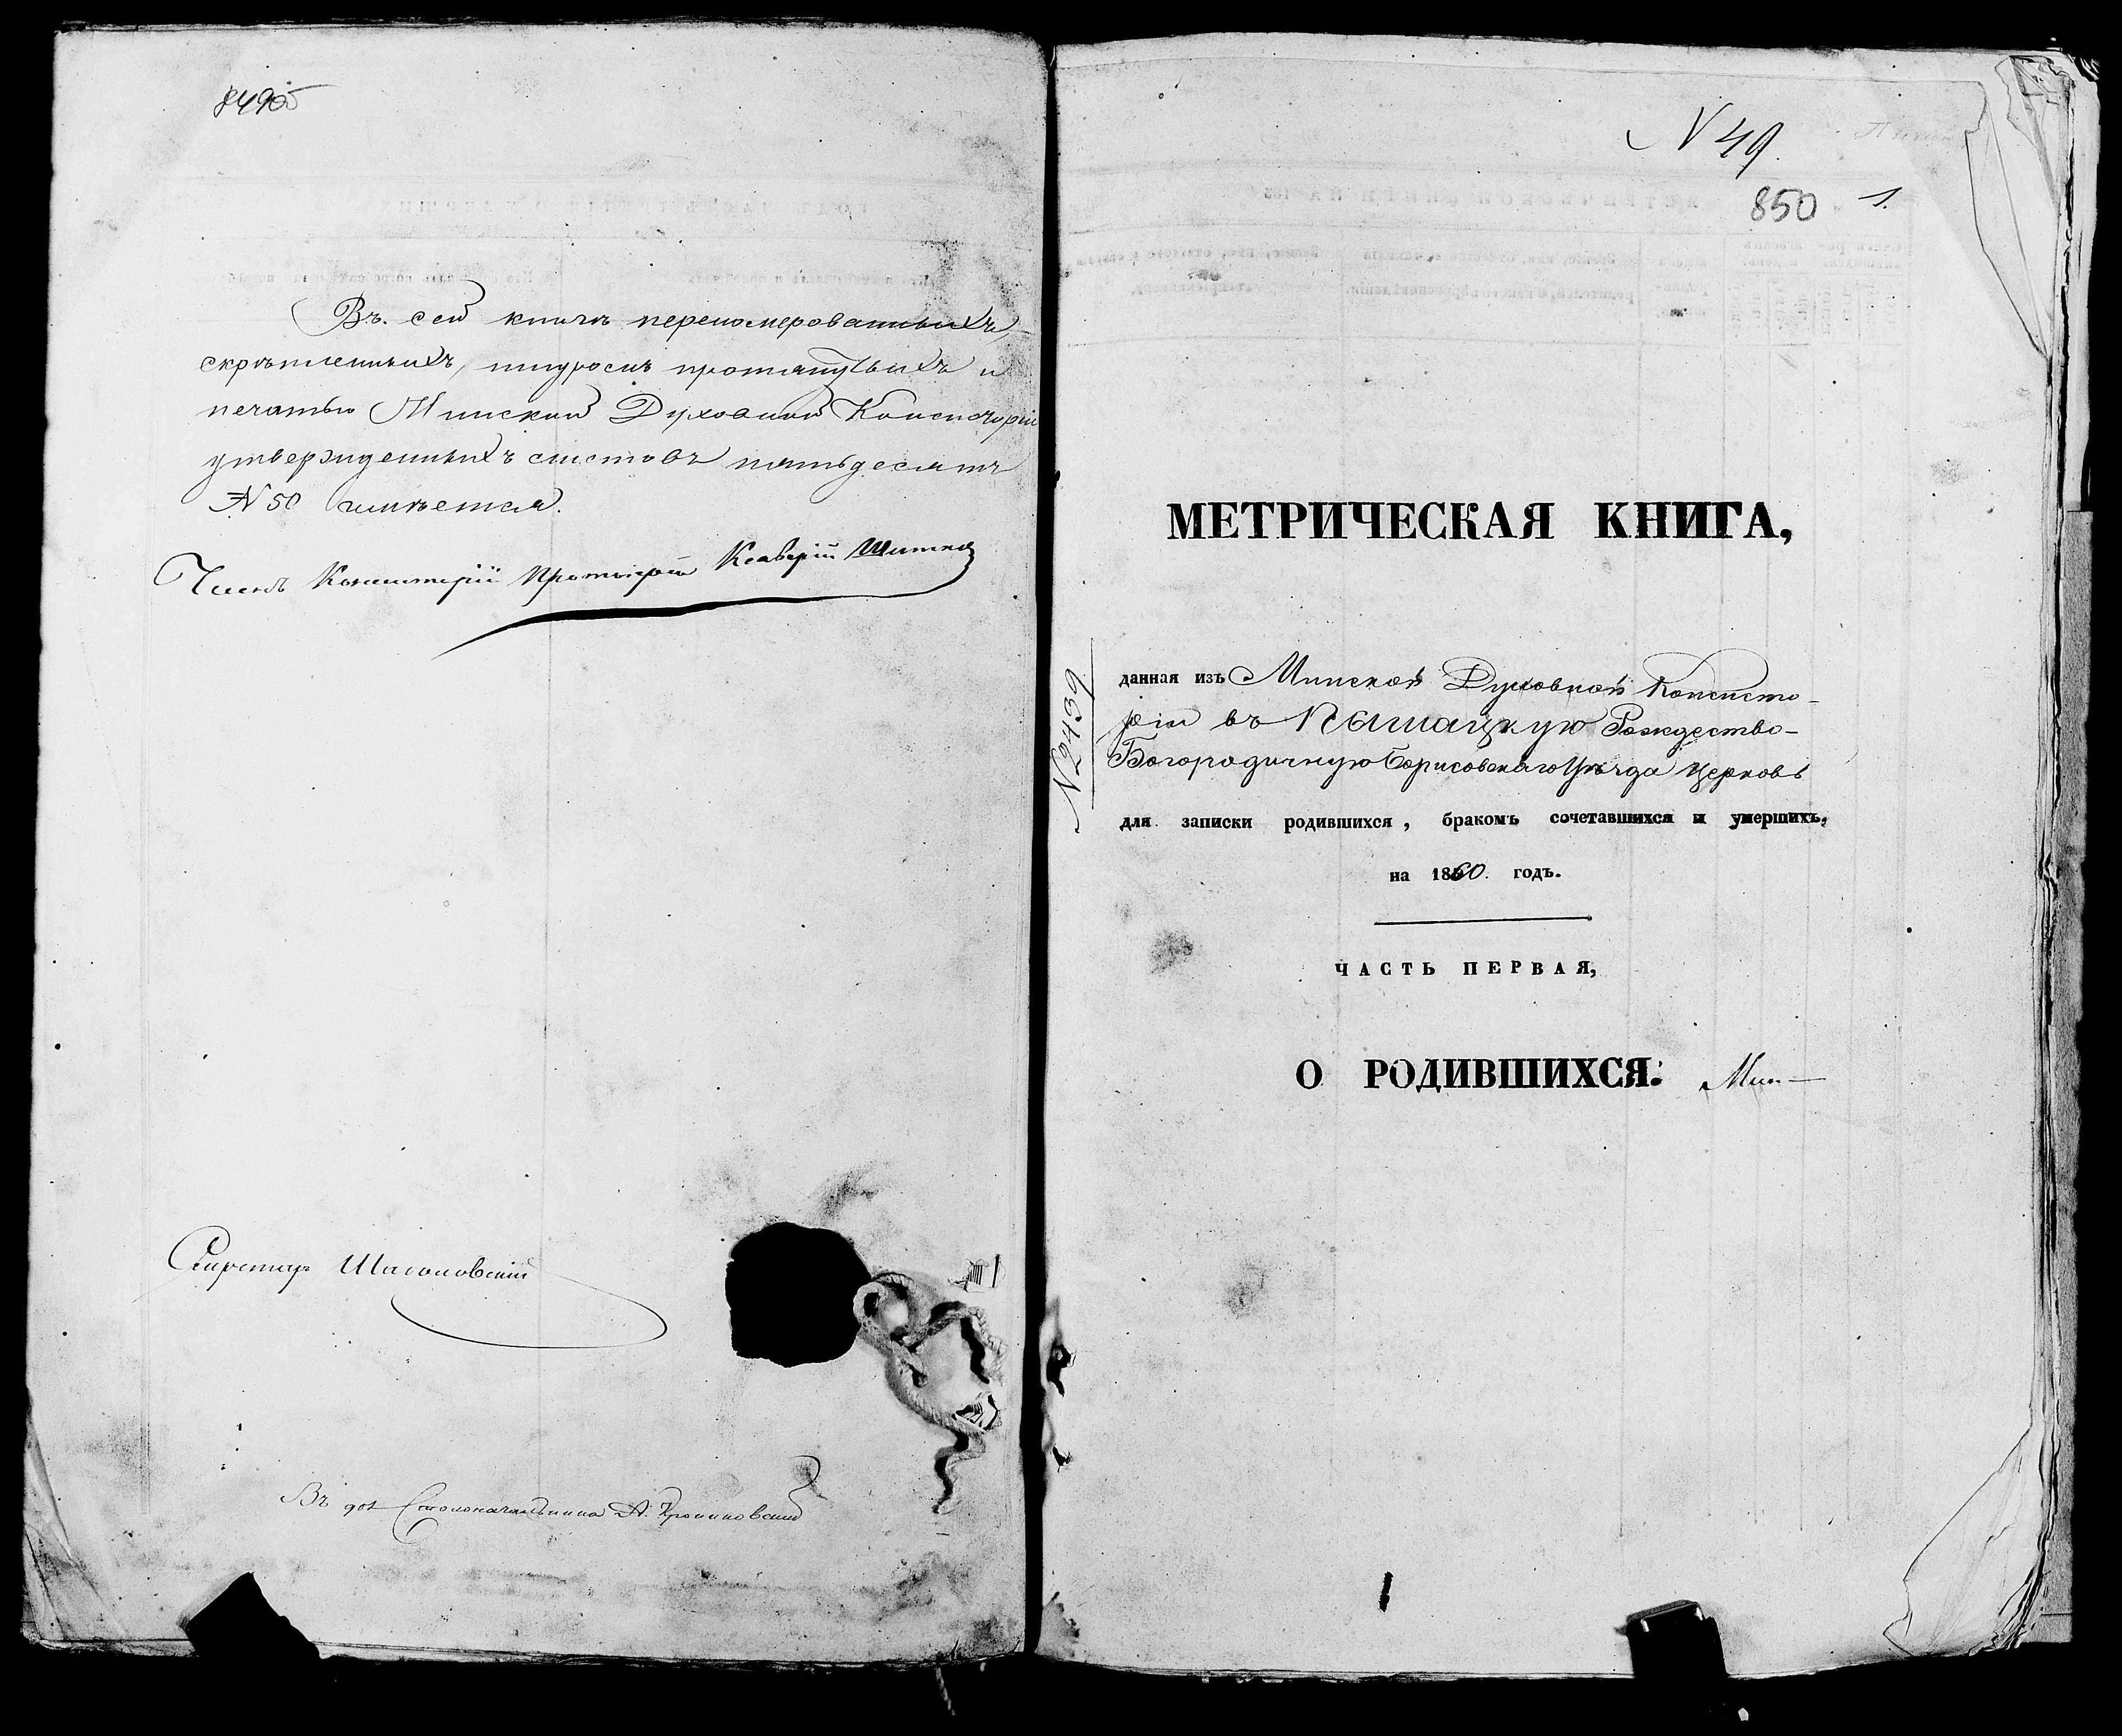 Въ сей книгѣ перенoмерованныхъ,
скрѣпленныхъ, шнуромъ протянутыхъ и
печатью Минской Духовной Консисторіи
утвержденныхъ листовъ пятьдесятъ
№ 50 имѣется.
Членъ Консисторіи Протоіерей Ксаверій
Секретарь
Въ дол Столоначальника А.
N 49.
850 1.
МЕТРИЧЕСКАЯ КНИГА,
N 2439
данная изъ Минской Духовной Консисто-
ріи въ Пышацкую Рождество-
Богородичную Борисовскаго Уѣзда Церковь
для записки родившихся, бракомъ сочетавшихся и умершихъ,
на 1860. годъ.
ЧАСТЬ ПЕРВАЯ,
О РОДИВШИХСЯ. Мин—